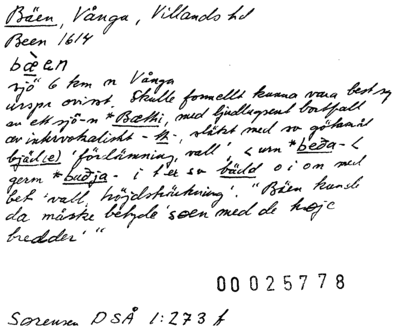 Bäen, Vånga, Villands hd
Been 1614
bæ̀en
sjö 6 km n Vånga
urspr ovisst. Skulle formellt kunna vara best sg
av ett sjö-n *Bæthi, med ljudlagsenl bortfall
av intervokaliskt -th-, släkt med sv götamål
bjäd(e) 'fördämning, vall' < urn *beða- <
germ *buðja- i t er sv bädd o i on med
bet 'vall, höjdsträckning'. "Bäen kunde
da måske betyde 'søen med de høje
bredder'"
00025778
Sørensen DSÅ 1:273 f